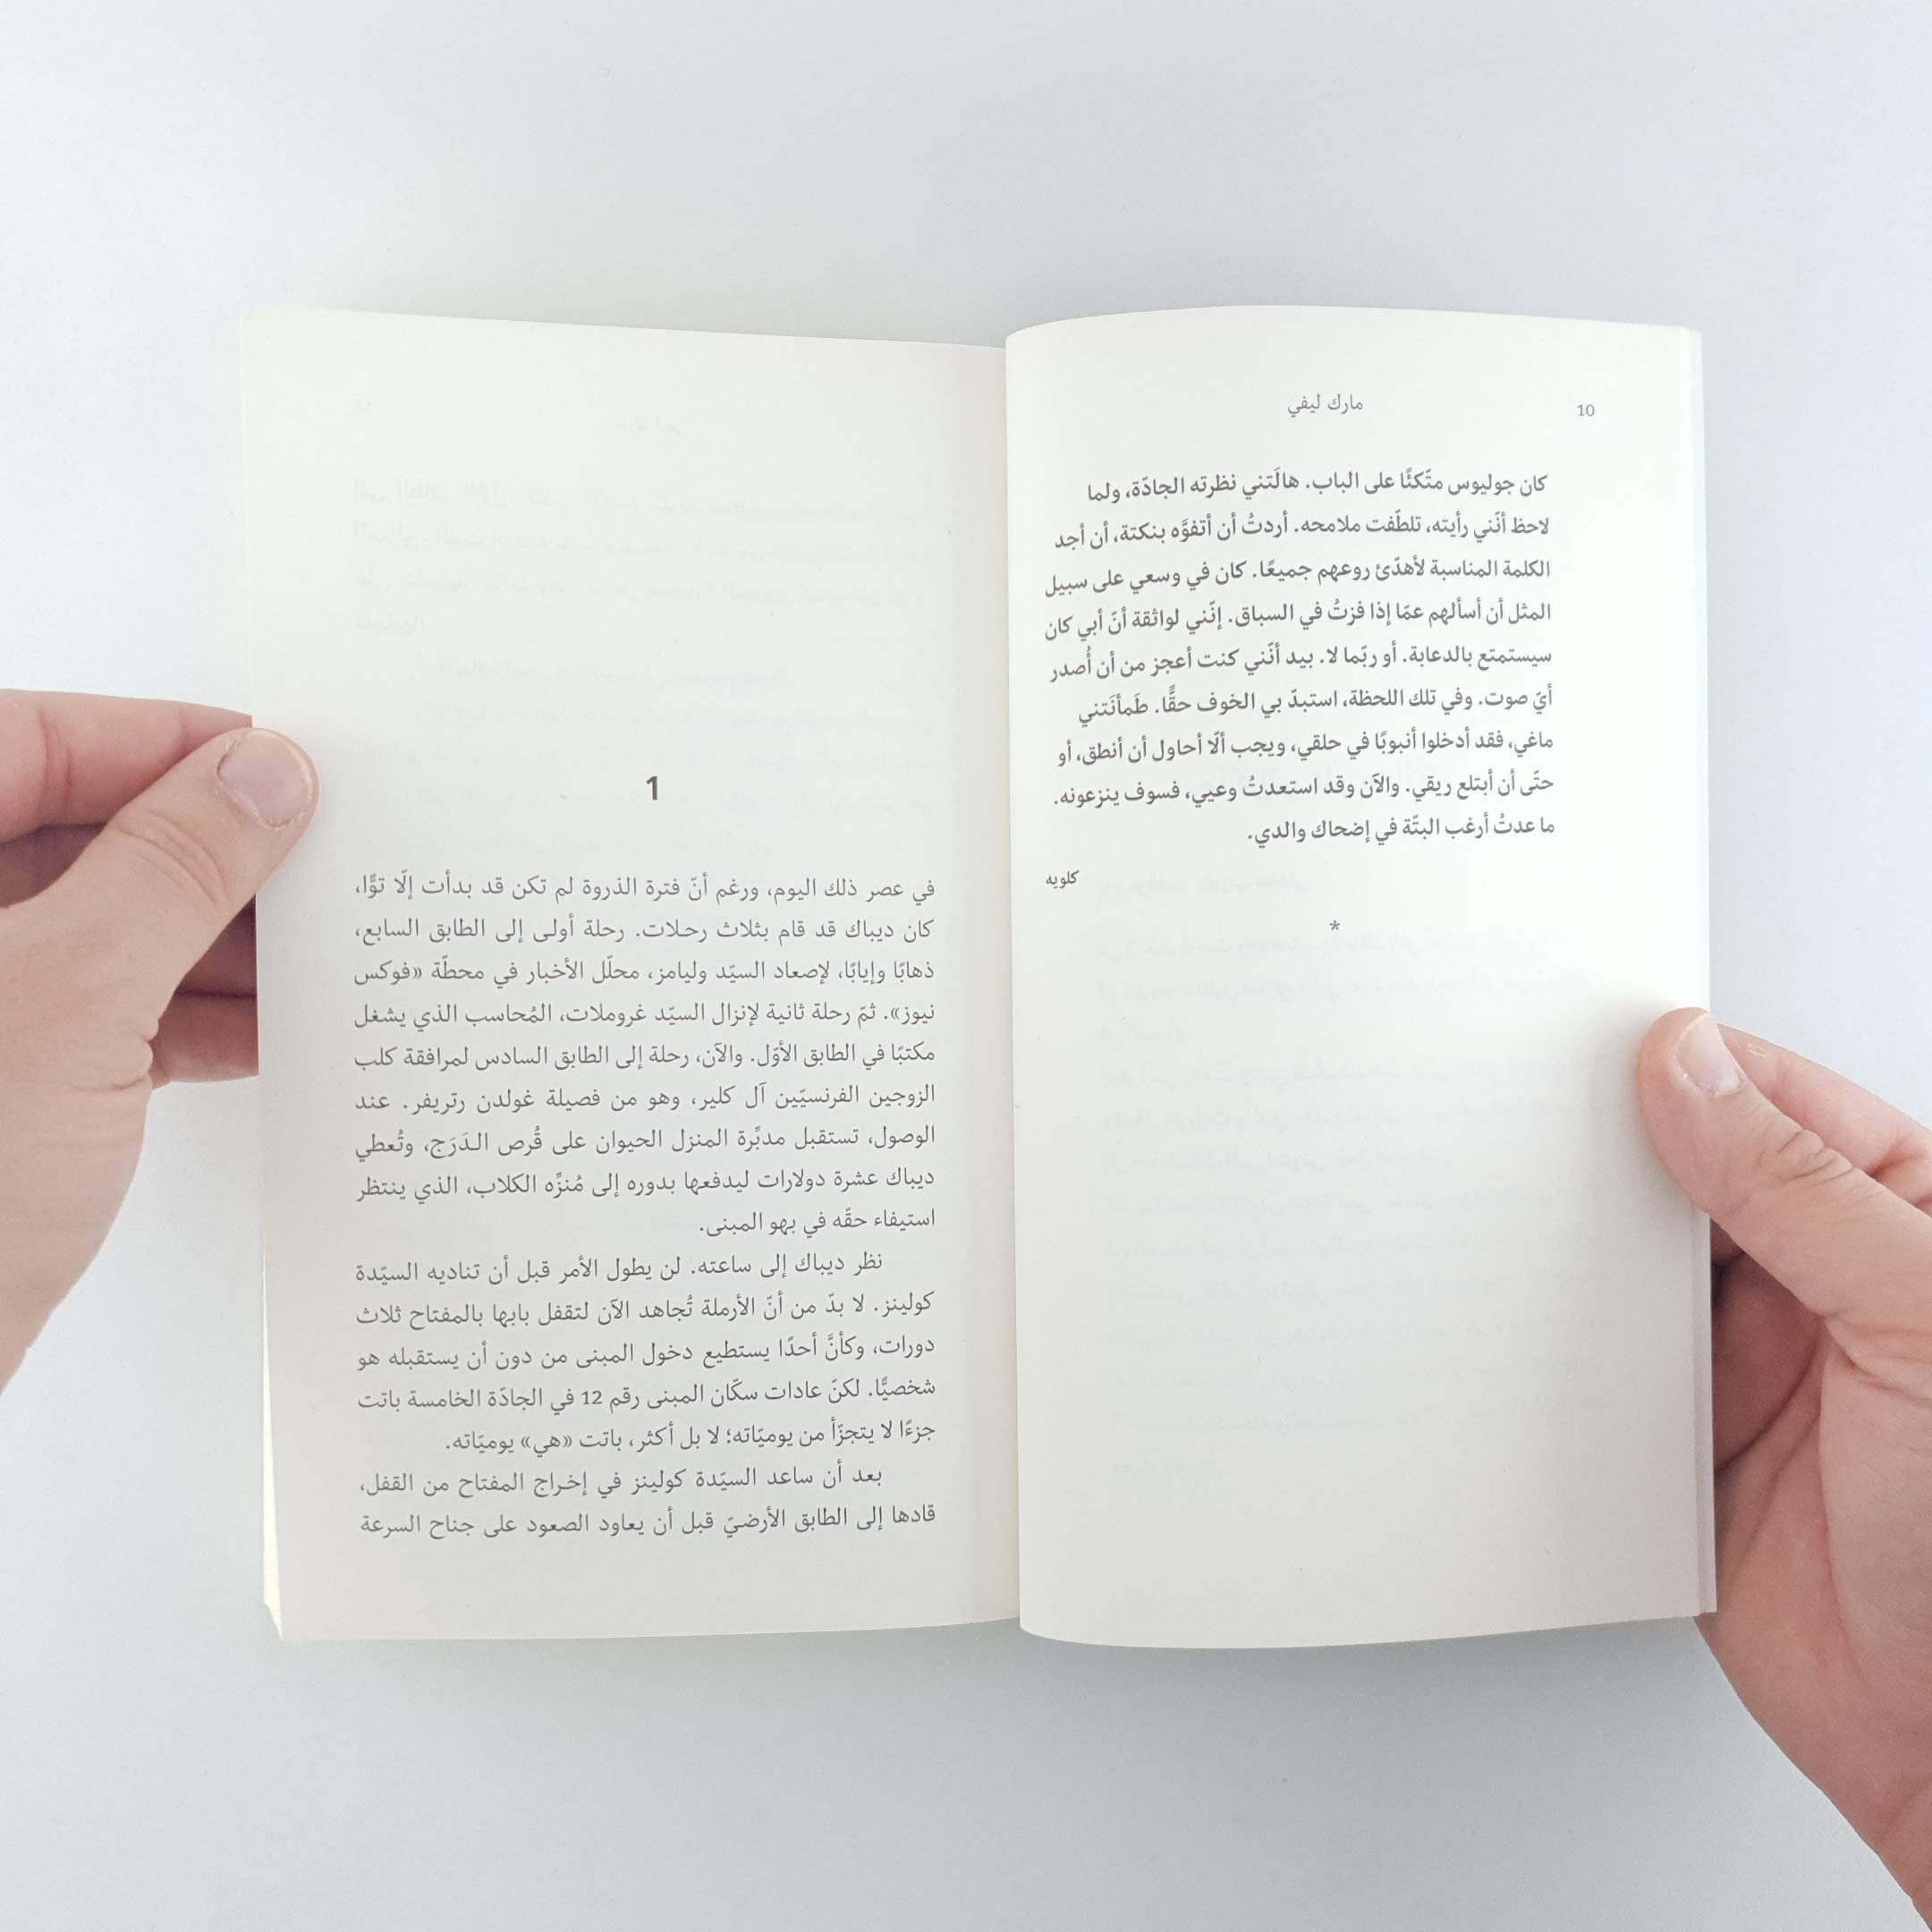 10
مارك ليفي
كان جوليوس متّكئًا على الباب. هالَتني نظرته الجادّة، ولما
لاحظ أنّني رأيته، تلطّفت ملامحه. أردتُ أن أتفوَّه بنكتة، أن أجد
الكلمة المناسبة لأهدّئ روعهم جميعًا. كان في وسعي على سبيل
المثل أن أسألهم عمّا إذا فزتُ في السباق. إنّني لواثقة أنّ أبي كان
سيستمتع بالدعابة. أو ربّما لا. بيد أنّني كنت أعجز من أن أُصدر
أيّ صوت. وفي تلك اللحظة، استبدّ بي الخوف حقًّا. طَمأنَتني
ماغي، فقد أدخلوا أنبوبًا في حلقي، ويجب ألّا أحاول أن أنطق، أو
حتّى أن أبتلع ريقي. والآن وقد استعدتُ وعيي، فسوف ينزعونه.
ما عدتُ أرغب البتّة في إضحاك والدي.
كلويه
*
1
في عصر ذلك اليوم، ورغم أنّ فترة الذروة لم تكن قد بدأت إلّا توًّا،
كان ديباك قد قام بثلاث رحلات. رحلة أولى إلى الطابق السابع،
ذهابًا وإيابًا، لإصعاد السيّد وليامز، محلّل الأخبار في محطّة «فوكس
نيوز». ثمّ رحلة ثانية لإنزال السيّد غروملات، المُحاسب الذي يشغل
مكتبًا في الطابق الأوّل. والآن، رحلة إلى الطابق السادس لمرافقة كلب
الزوجين الفرنسيّين آل كلير، وهو من فصيلة غولدن رتريفر. عند
الوصول، تستقبل مدبِّرة المنزل الحيوان على قُرص الـدَرَج، وتُعطي
ديباك عشرة دولارات ليدفعها بدوره إلى مُنزِّه الكلاب، الذي ينتظر
استيفاء حقّه في بهو المبنى.
نظر ديباك إلى ساعته. لن يطول الأمر قبل أن تناديه السيّدة
كولينز. لا بدّ من أنّ الأرملة تُجاهد الآن لتقفل بابها بالمفتاح ثلاث
دورات، وكأنَّ أحدًا يستطيع دخول المبنى من دون أن يستقبله هو
شخصيًّا. لكنّ عادات سكّان المبنى رقم 12 في الجادّة الخامسة باتت
جزءًا لا يتجزّأ من يوميّاته؛ لا بل أكثر، باتت «هي» يوميّاته.
بعد أن ساعد السيّدة كولينز في إخـراج المفتاح من القفل،
قادها إلى الطابق الأرضيّ قبل أن يعاود الصعود على جناح السرعة